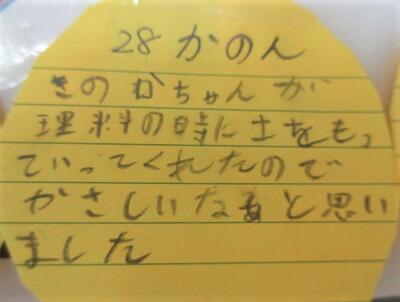 28 かのん
きのかちゃんが
理料の時に土をもっ
ていってくれたので
やさしいなぁと思い
ました